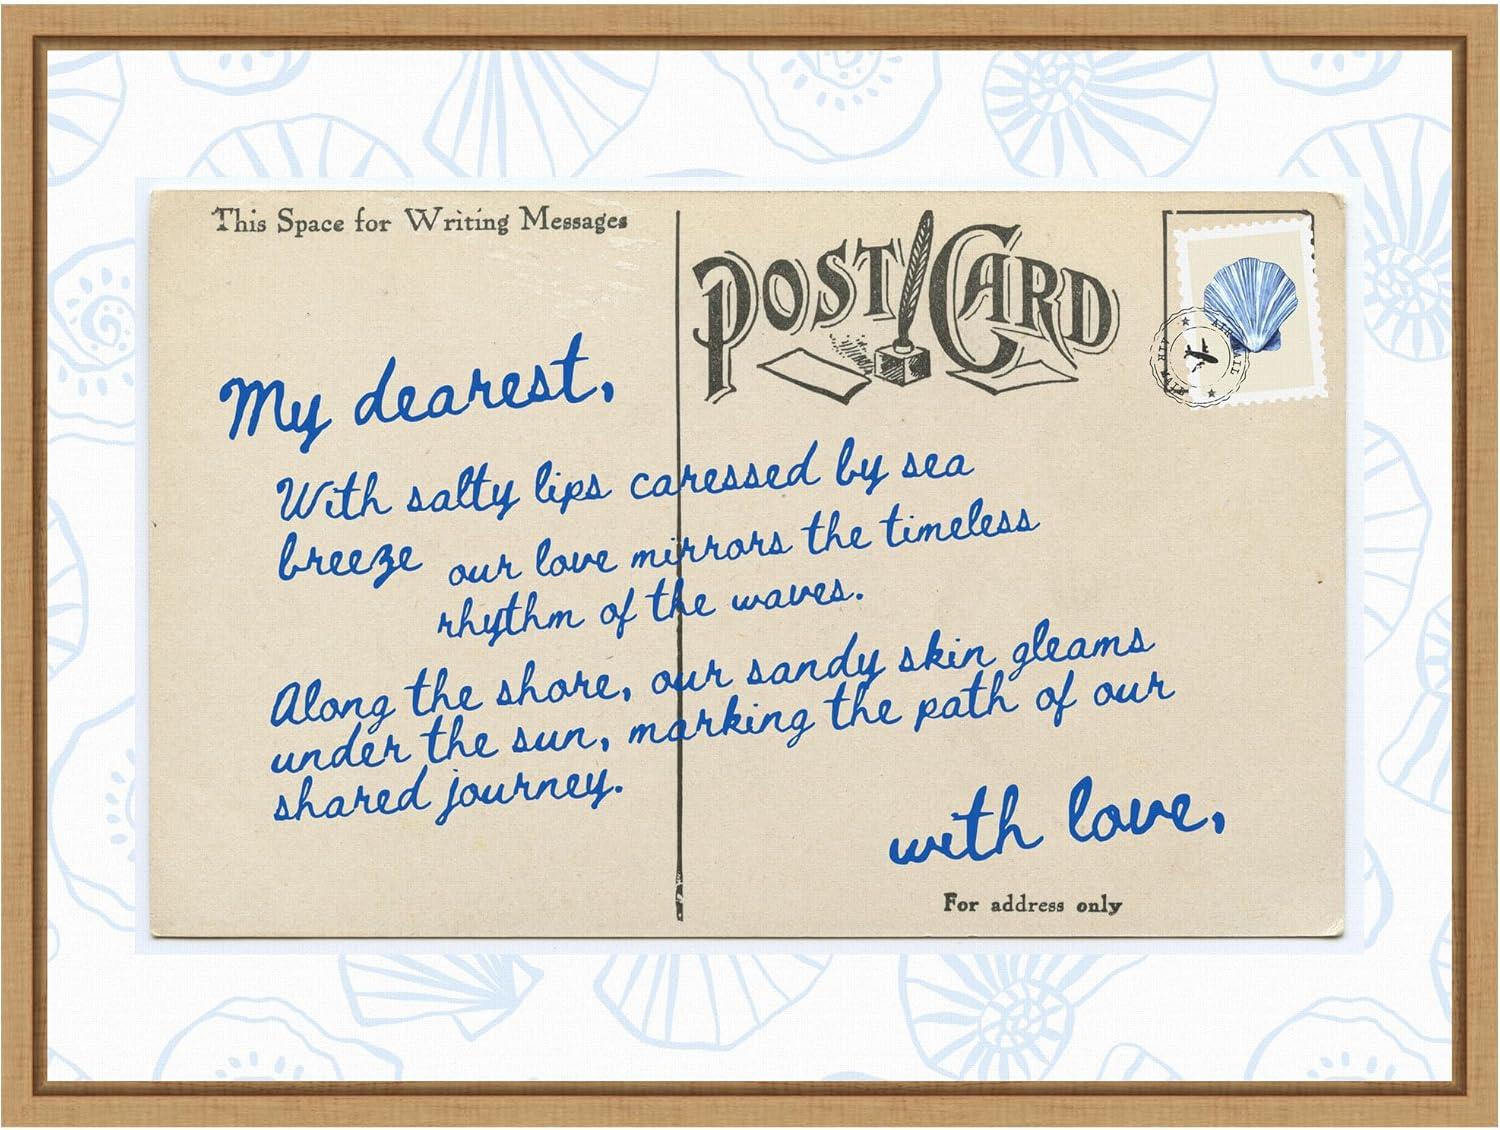 This Space for Writing Messages
POST CARD
AIR MAIL
AIR MAIL
My dearest,
With salty lips caressed by sea
breeze our love mirrors the timeless
rhythm of the waves.
Along the shore, our sandy skin gleams
under the sun, marking the path of our
shared journey.
with love,
For address only